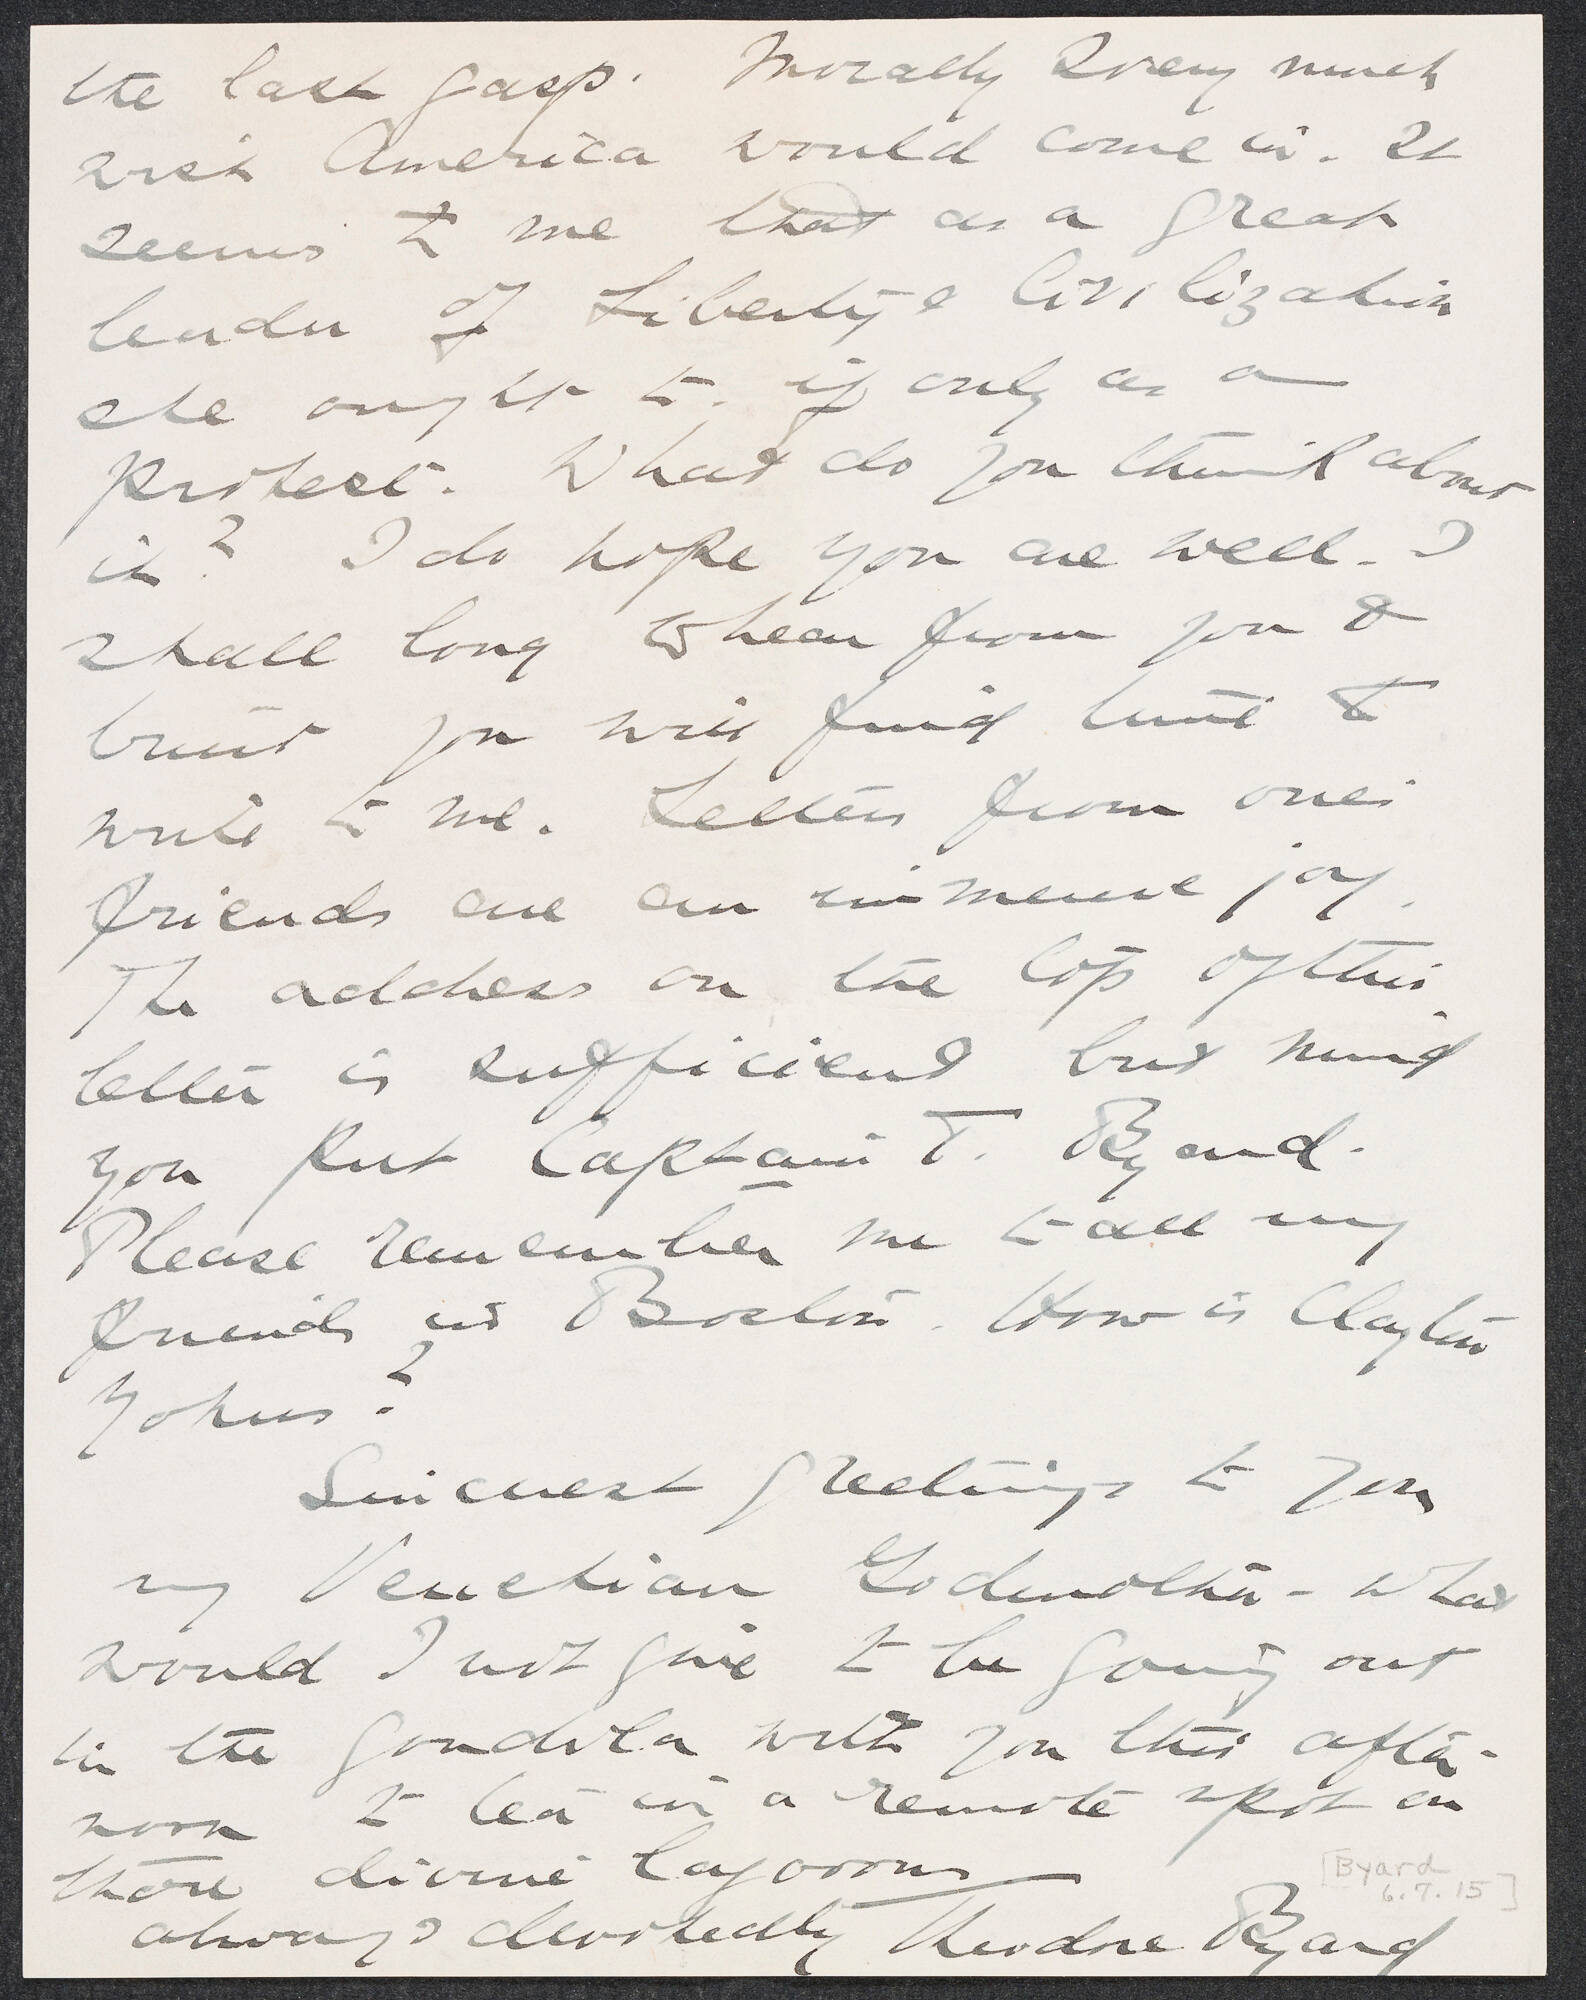 the last gasp. Morally I very much
wish America would come in. It
seems to me that as a great
leader of Liberty & Civilization
she ought to. if only as a
protest. What do you think about
it? I do hope you are well. I
shall long to hear from you &
trust you will find time to
write to me. Letters from one's
friends are an immense joy.
The address on the top of this
letter is sufficient but mind
you put Captain T. Byard.
Please remember me to all my
friends in Boston. How is Clayton
Johns?
Sincerest greetings to you
my Venetian Godmother - what
would I not give to be going out
in the gondola with you this after-
noon to tea in a remote spot on
those divine lagoons
always devotedly Theodore Byard
[Byard
6.7.15]